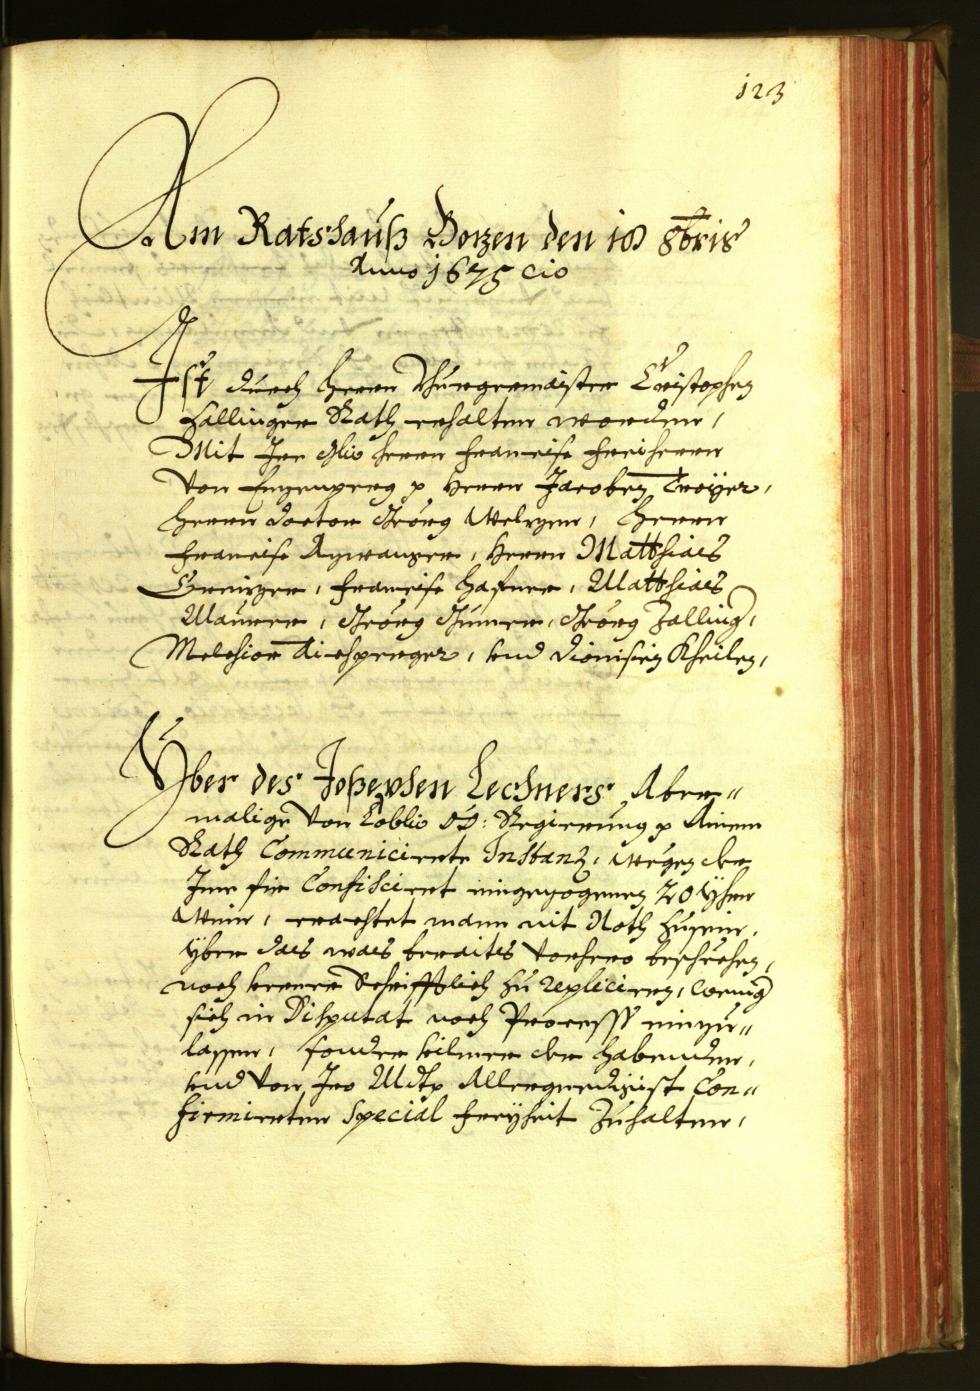 123
Am Ratshauß Botzen den 18 8bris
Anno 1675 cio
Ist durch Herrn Burgermaister Christophen
Zallinger Rath erhalten worden,
Mit Irer Herrn Francisc Freiherrn
von p Herrn Jacoben Troÿer,
Herrn Doctor Geörg Welzer, Herrn
Francisc Herrn Matthias
Francisc Hafner, Matthias
Maurer, Geörg Geörg Zalling,
Melchior und Dionisien Kheilen,
Über des Josephen Lechners Aber-
malige von Loblic OÖ: Regierung p Ainem
Rath Communicierte Instanz, wegen der
Ime fir Confisciert eingezogenen 20 Yhrn
Wein, erachtet mann nit Noth zusein,
yber das was beraits vorhero beschechen,
noch Schrifftlich zu replicieren, weenig
sich in Disputat noch Process einzu-
lassen, sonder der habenden,
und von Irer Allergnedigist Con-
firmierten Special Freÿheit zuhalten,